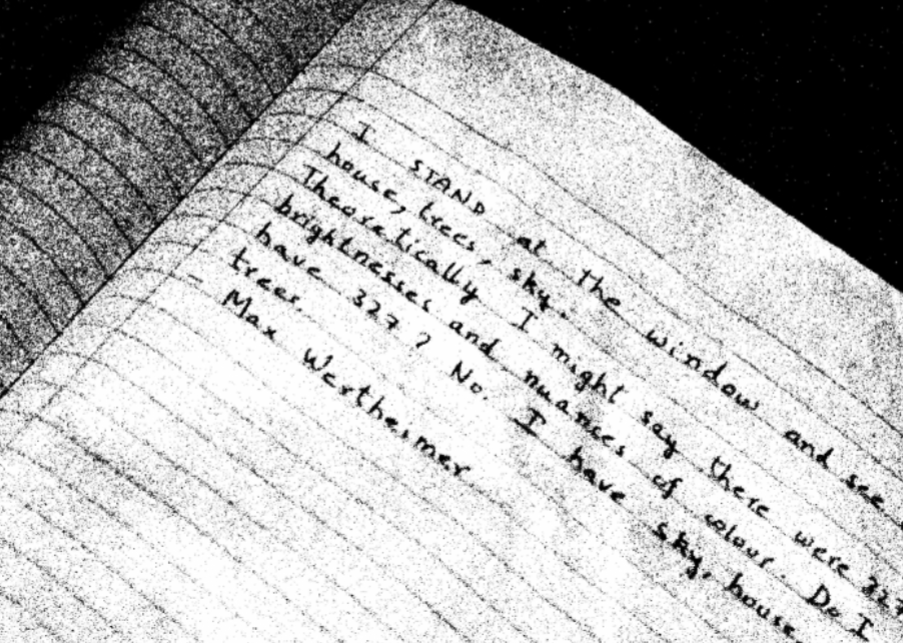 I STAND at the window and see
house, trees, sky.
Theoratically I might say there were 327
brightnesses and nuances of colour. Do I
have 327? No. I have sky, house
trees.
Max Werthesmer